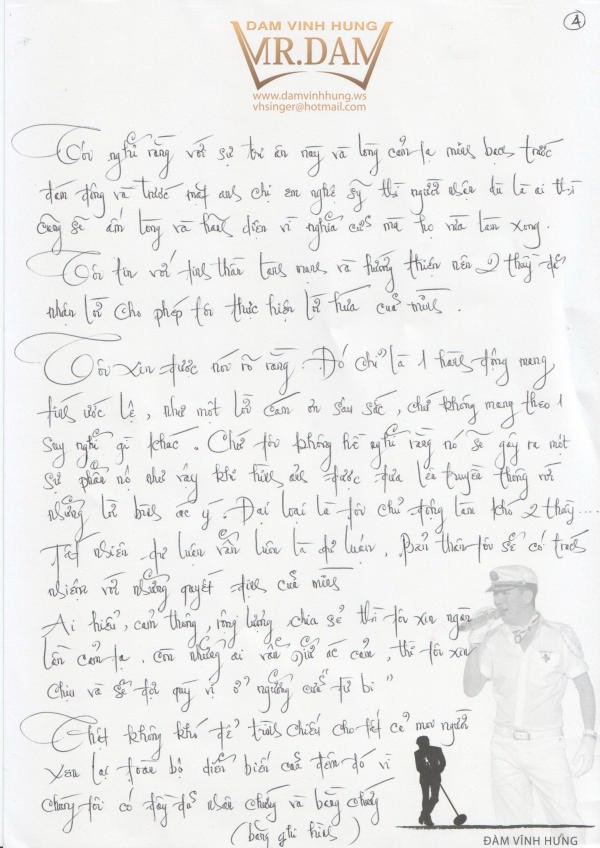 4
DAM VINH HUNG
MR.DAM
www.damvinhhung.ws
vhsinger@hotmail.com
Tôi nghĩ rằng với sự tri ân này và lòng cảm tạ minh bạch trước
đám đông và trước mặt anh chị em nghệ sỹ thì người nhận dù là ai thì
cũng sẽ ấm lòng và hãnh diện vì nghĩa cử mà họ vừa làm xong.
Tôi tin với tinh thần lành mạnh và hướng thiện nên 2 thầy đã
nhận lời cho phép tôi thực hiện lời hứa của mình.
Tôi xin được nói rõ rằng. Đó chỉ là 1 hành động mang
tính ước lệ, như một lời cám ơn sâu sắc, chứ không mang theo 1
suy nghĩ gì khác. Chứ tôi không hề nghĩ rằng nó sẽ gây ra một
sự phẫn nộ như vậy khi hình ảnh được đưa lên truyền thông với
những lời bình ác ý. Đại loại là tôi chủ động làm khó 2 thầy....
Tất nhiên dư luận vẫn luôn là dư luận, bản thân tôi sẽ có trách
nhiệm với những quyết định của mình
Ai hiểu, cảm thông, rộng lượng, chia sẻ thì tôi xin ngàn
lần cảm tạ. Còn những ai vẫn giữ ác cảm, thì tôi xin
chịu và sẽ đợi quý vị ở ngưỡng cửa từ bi"
Thật không khó để trình chiếu cho tất cả mọi người
xem lại toàn bộ diễn biến của đêm đó vì
chúng tôi có đầy đủ nhân chứng và bằng chứng
(băng ghi hình)
ĐÀM VĨNH HƯNG